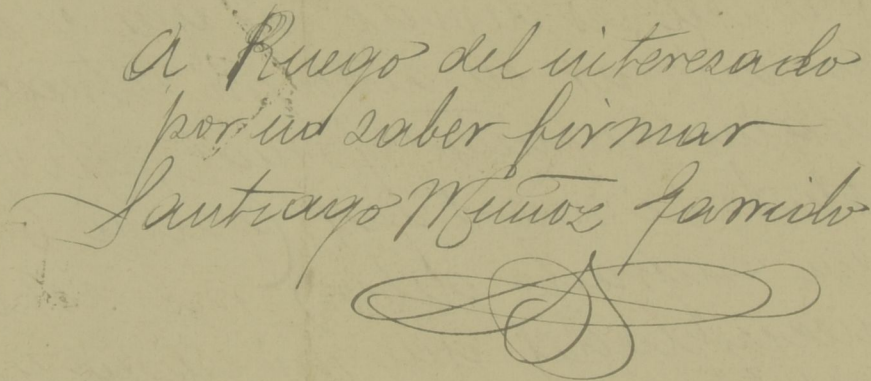 A Ruego del interesado
por no saber firmar
Santiago Muñoz Garrido